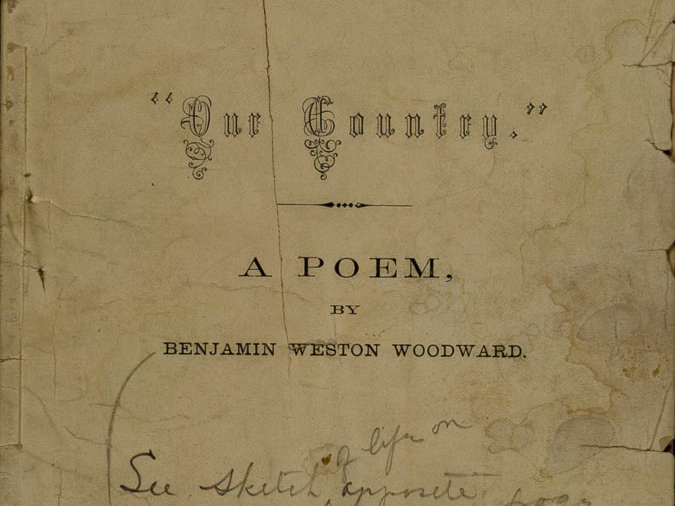 “Our Country.”
A POEM,
BY
BENJAMIN WESTON WOODWARD.
of life on
See sketch, opposite page